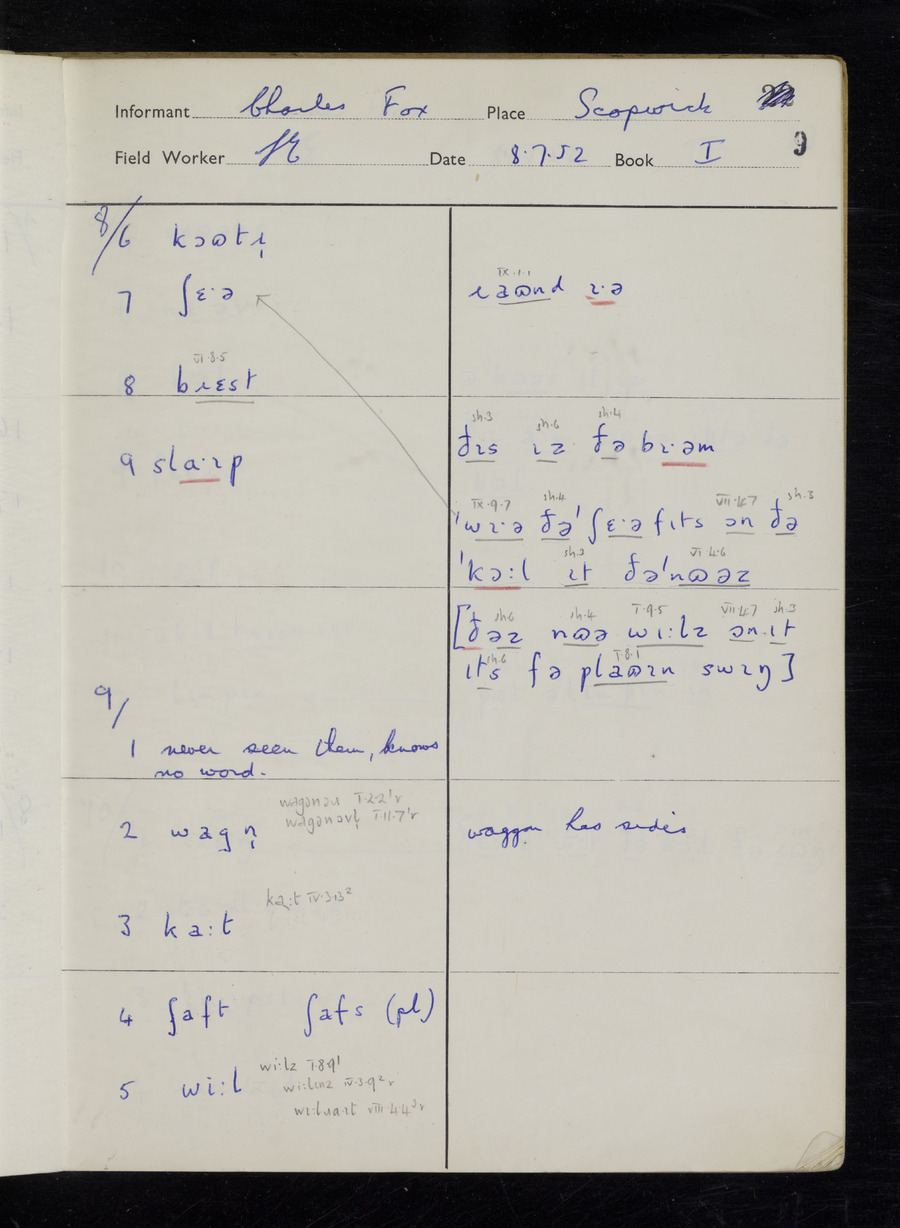 Informant Charles Fox Place Scopwick
9
Field Worker Date 8.7.52 Book I
8/6 kɔʊtɹ̩
7 ʃɛ·ə
IX.1.1
ɹaʊnd ɪ·ə
VI.8.5
8 bɹɛst
sh.3 sh.6 sh.4
ðɪs ɪz ðə bɪəm
9 sla·ɪp
IX.9.7 sh.4 VII.4.7 sh.3
ˈwɪ·ə ðəˈʃɛ·ə fɪts ɔn ðə
sh.3 VI.4.6
ˈkɔ:l ɪt ðəˈnʊəz
sh.6 sh.4 I.9.5 VII.4.7 sh.3
[ðəz nʊə wi:lz ɔn ɪt
sh.6 I.8.1
ɪts fə plaʊɪn swɪŋ]
9/
1 never seen them, knows
no word.
I.2.2'r
I.11.7'r
2 wagn̩
waggon has sides
ka:t IV.3.13²
3 ka:t
4 ʃaft ʃafs (pl)
wi:lz I.8.9'
5 wi:l
IV.3.9²r
VIII.4.4³r